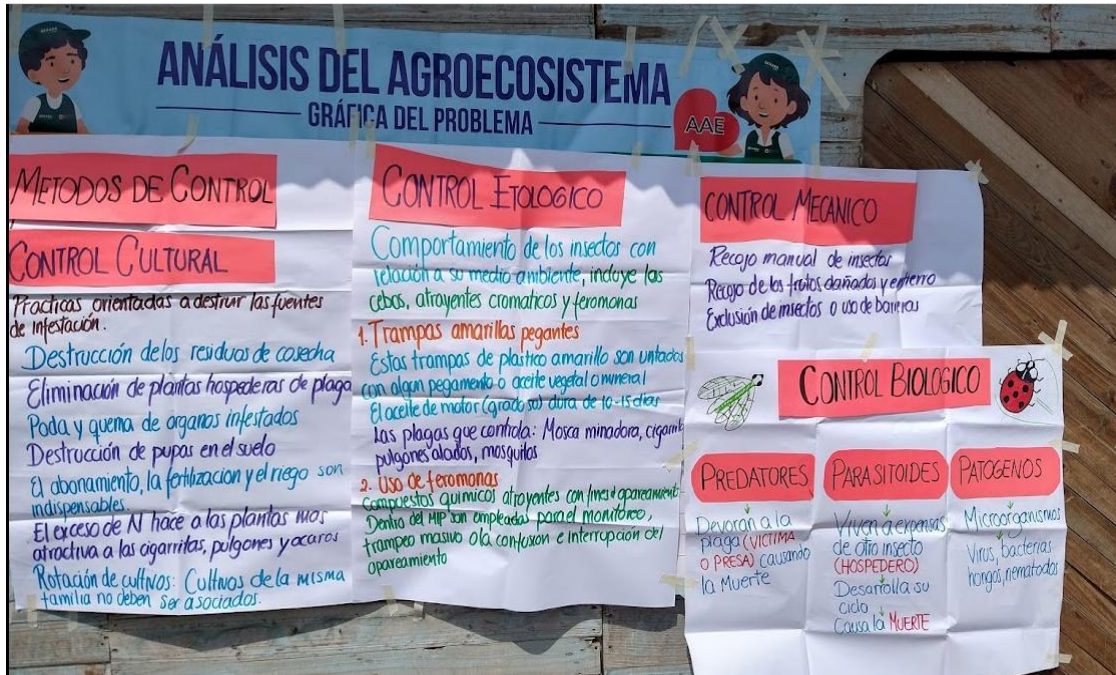 ANÁLISIS DEL AGROECOSISTEMA
GRÁFICA DEL PROBLEMA
AAE
METODOS DE CONTROL
CONTROL CULTURAL
Practicas orientadas a destruir las fuentes
de infestación.
Destrucción de los residuos de cosecha
Eliminación de plantas hospederas de plaga
Poda y quema de organos infestados
Destrucción de pupas en el suelo
El abonamiento, la fertilización y el riego son
indispensables.
El exceso de N hace a las plantas mas
atractiva a las cigarritas, pulgones y acaros
Rotación de cultivos: Cultivos de la misma
familia no deben ser asociados.
CONTROL ETOLOGICO
Comportamiento de los insectos con
relación a su medio ambiente, incluye los
cebos, atrayentes cromaticos y feromonas
1. Trampas amarillas pegantes
Estas trampas de plastico amarillo son untados
con algun pegamento o aceite vegetal o mineral
El aceite de motor (grado 50) dura de 10-15 dias
Las plagas que controla: Mosca minadora,
pulgones alados, mosquitos
2. Uso de feromonas
Compuestos quimicos atrayentes con apareamiento
Dentro del MIP son empleadas para el monitoreo,
trampeo masivo o la confusión e interrupción del
apareamiento
CONTROL MECANICO
Recojo manual de insectos
Recojo de los frutos dañados y entierro
Exclusión de insectos o uso de barreras
CONTROL BIOLOGICO
PREDATORES
Devoran a la
plaga (VICTIMA
O PRESA) causando
la Muerte
PARASITOIDES
Viven a expensas
de otro insecto
(HOSPEDERO)
Desarrolla su
ciclo
Causa la MUERTE
PATOGENOS
Microorganismos
Virus, bacterias
hongos, nematodos